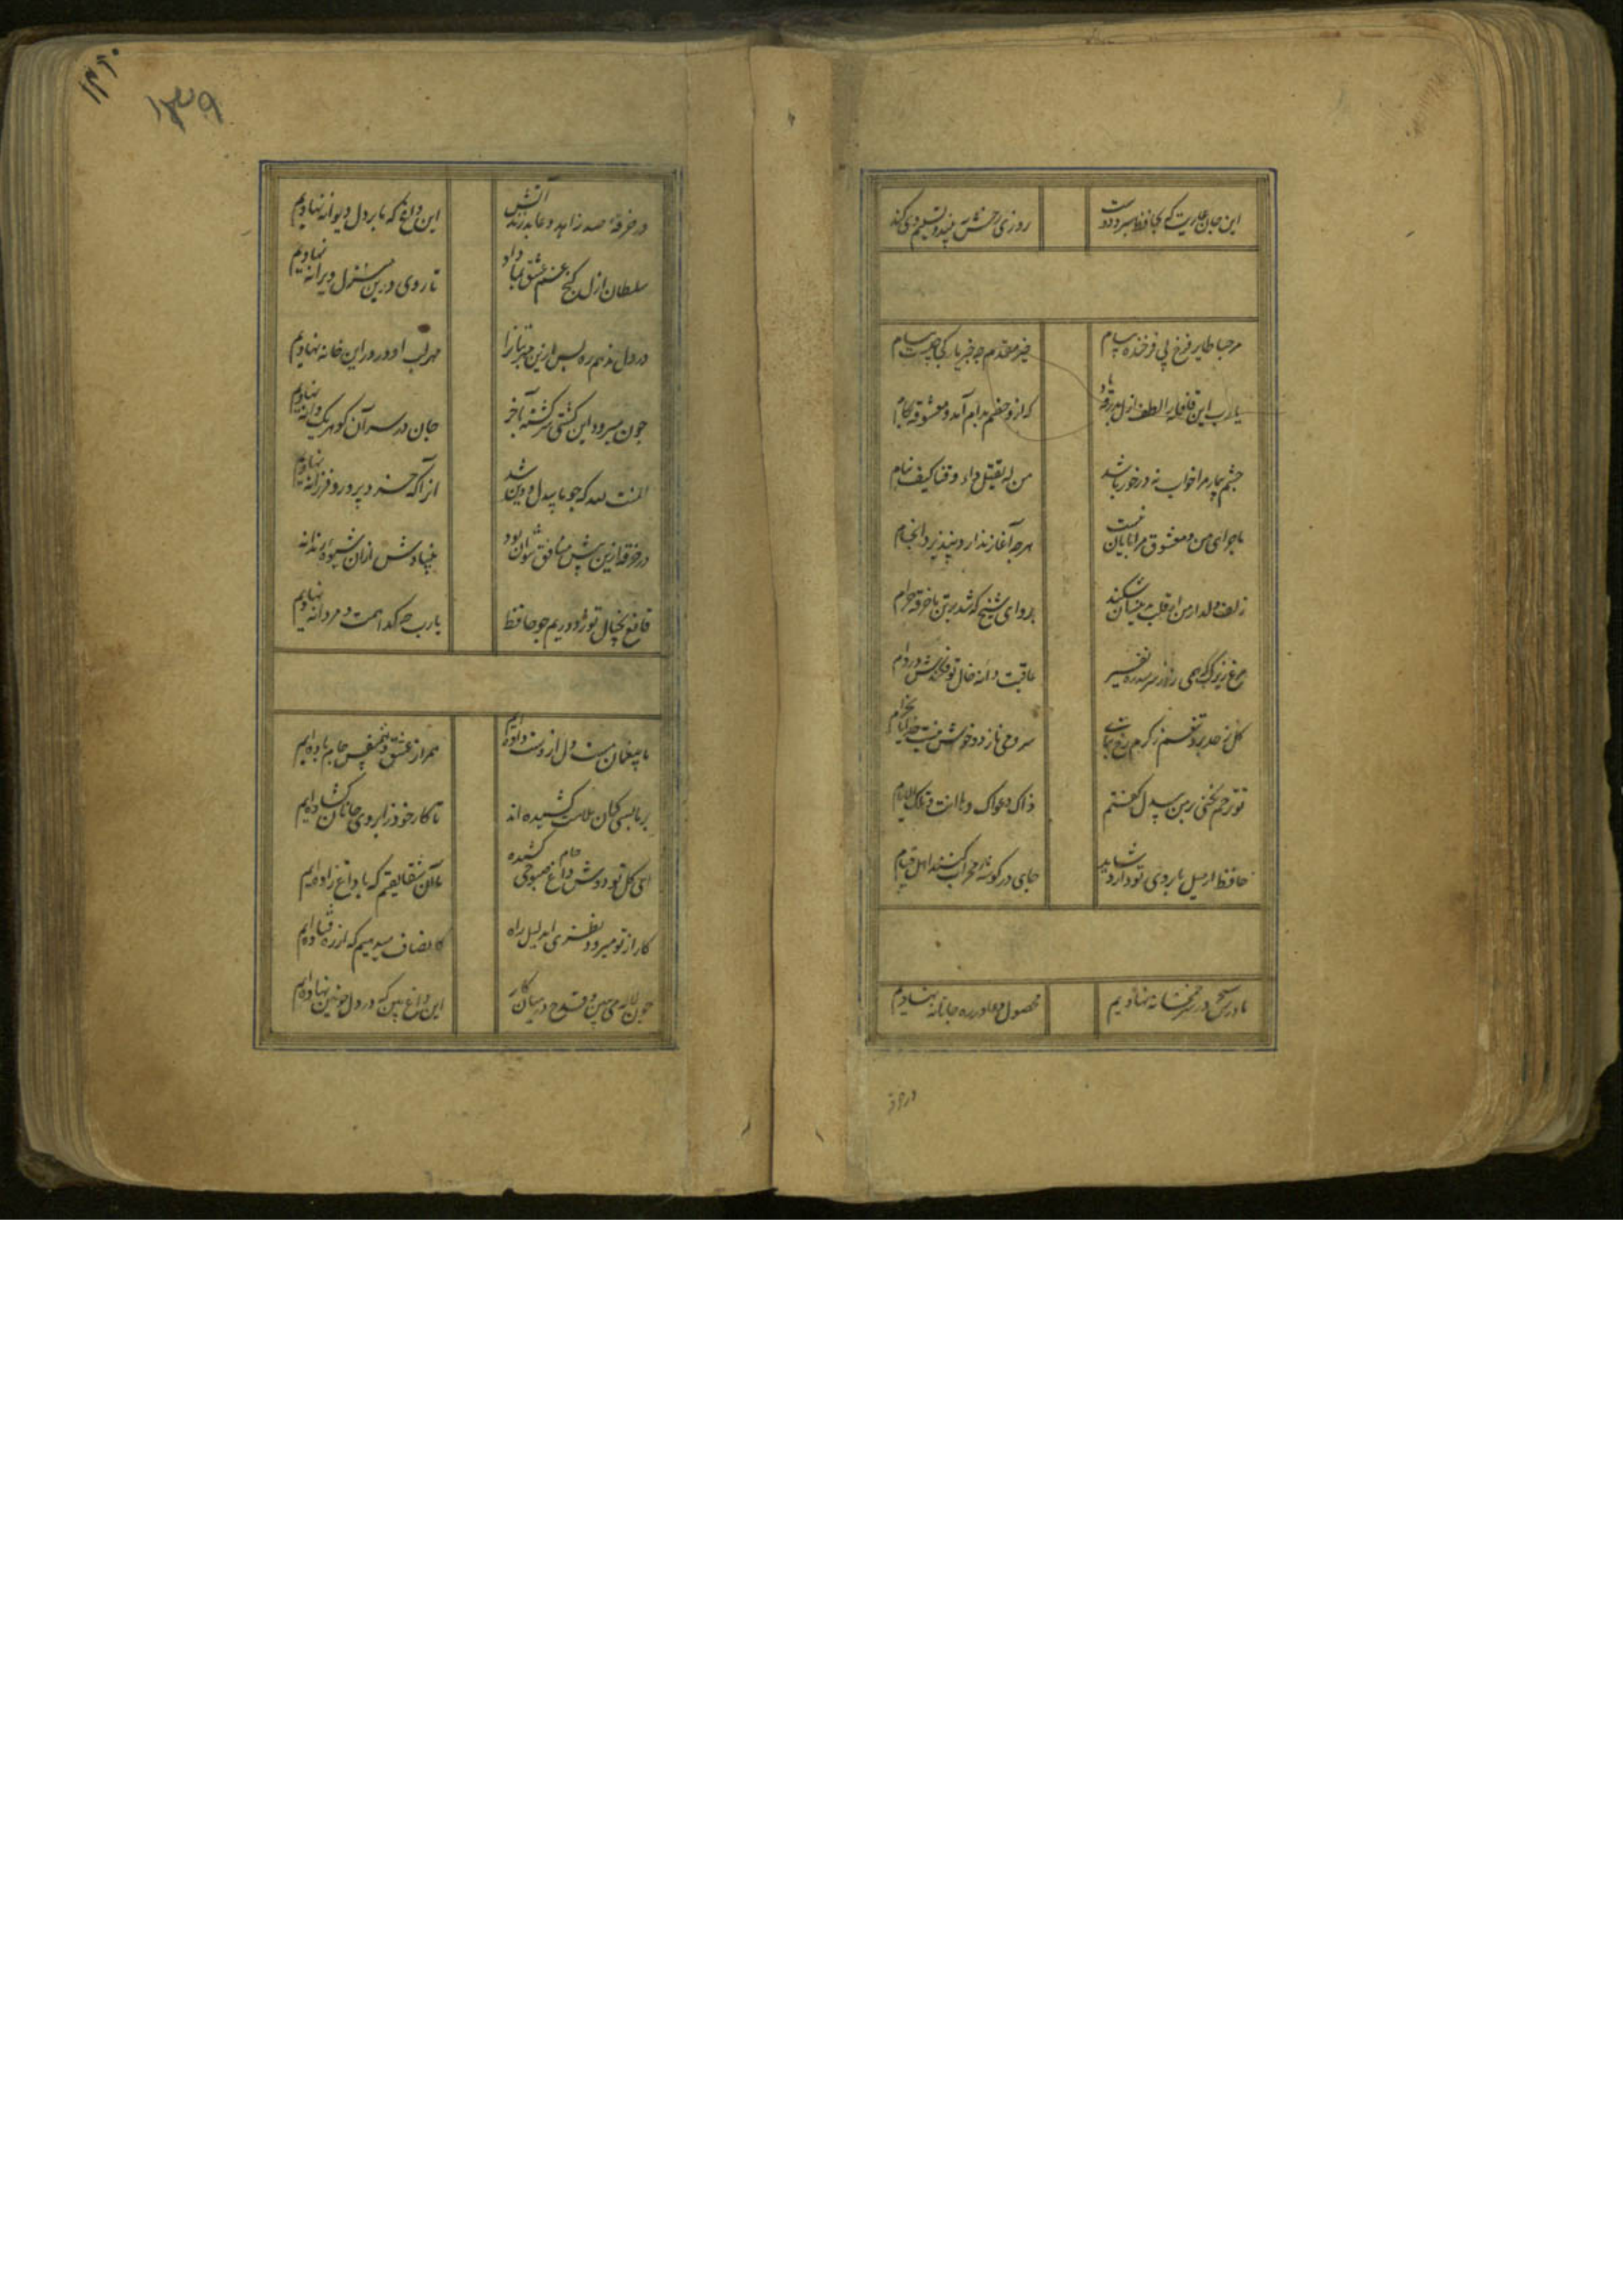 این جان عاریت که بحافظ سپرد دوست
روزی رخش ببینم و تسلیم وی کنم
مرحبا طایر فرخ پی فرخنده پیام
خیر مقدم چه خبر یار کجا راه کدام
یارب این قافله را لطف ازل بدرقه باد
که ازو خصم بدام آمد و معشوقه بکام
چشم بیمار مرا خواب نه درخور باشد
من له یقتل داء دنف کیف ینام
ماجرای من و معشوق مرا پایان نیست
هرچه آغاز ندارد نپذیرد انجام
زلف دلدار من
برو ای شیخ که شد بر تن ما خرقه حرام
مرغ زیرک که همی زد ز سر سدره صفیر
عاقبت دانه خال تو فکندش در دام
گل ز حد برد تنعم ز کرم رخ بنمای
سرو می نازد و خوش نیست خدا را بخرام
تو ترحم نکنی بر من بیدل گفتم
ذاک دعوای و ها انت و تلک الایام
حافظ ار میل بابروی تو دارد شاید
جای در گوشه محراب کنند اهل قیام
ما درس سحر در سر میخانه نهادیم
محصول دعا در ره جانانه نهادیم
در خرقه
۱۴۰
۱۳۹
در خرقهٔ صد زاهد و عابد زند آتش
این داغ که ما بر دل دیوانه نهادیم
سلطان ازل گنج غم عشق بما داد
تا روی درین منزل ویرانه نهادیم
در دل ندهم ره پس ازین مهر بتانرا
مهر لب او بر در این خانه نهادیم
چون میرود این کشتی سرگشته بآخر
جان در سر آن گوهر یکدانه نهادیم
المنت لله که چو ما بیدل و دین شد
آنرا که خرد پرور و فرزانه نهادیم
در خرقه ازین بیش منافق نتوان بود
بنیادش ازان شیوه رندانه
قانع بخیال تو ز تو بودیم چو حافظ
یارب چه گدا همت و مردانه نهادیم
ما بیغمان مست دل از دست داده ایم
همراز عشق و همنفس جام باده ایم
بر ما بسی کمان ملامت کشیده اند
تا کار خود ز ابروی جانان گشاده ایم
ای گل تو دوش داغ صبوحی کشیده
ما آن شقایقیم که با داغ زاده ایم
کار از تو میرود نظری ای دلیل راه
کانصاف میدهیم که از ره فتاده ایم
چون لاله می مبین و قدح در میان کار
این داغ بین که در دل خونین نهاده ایم